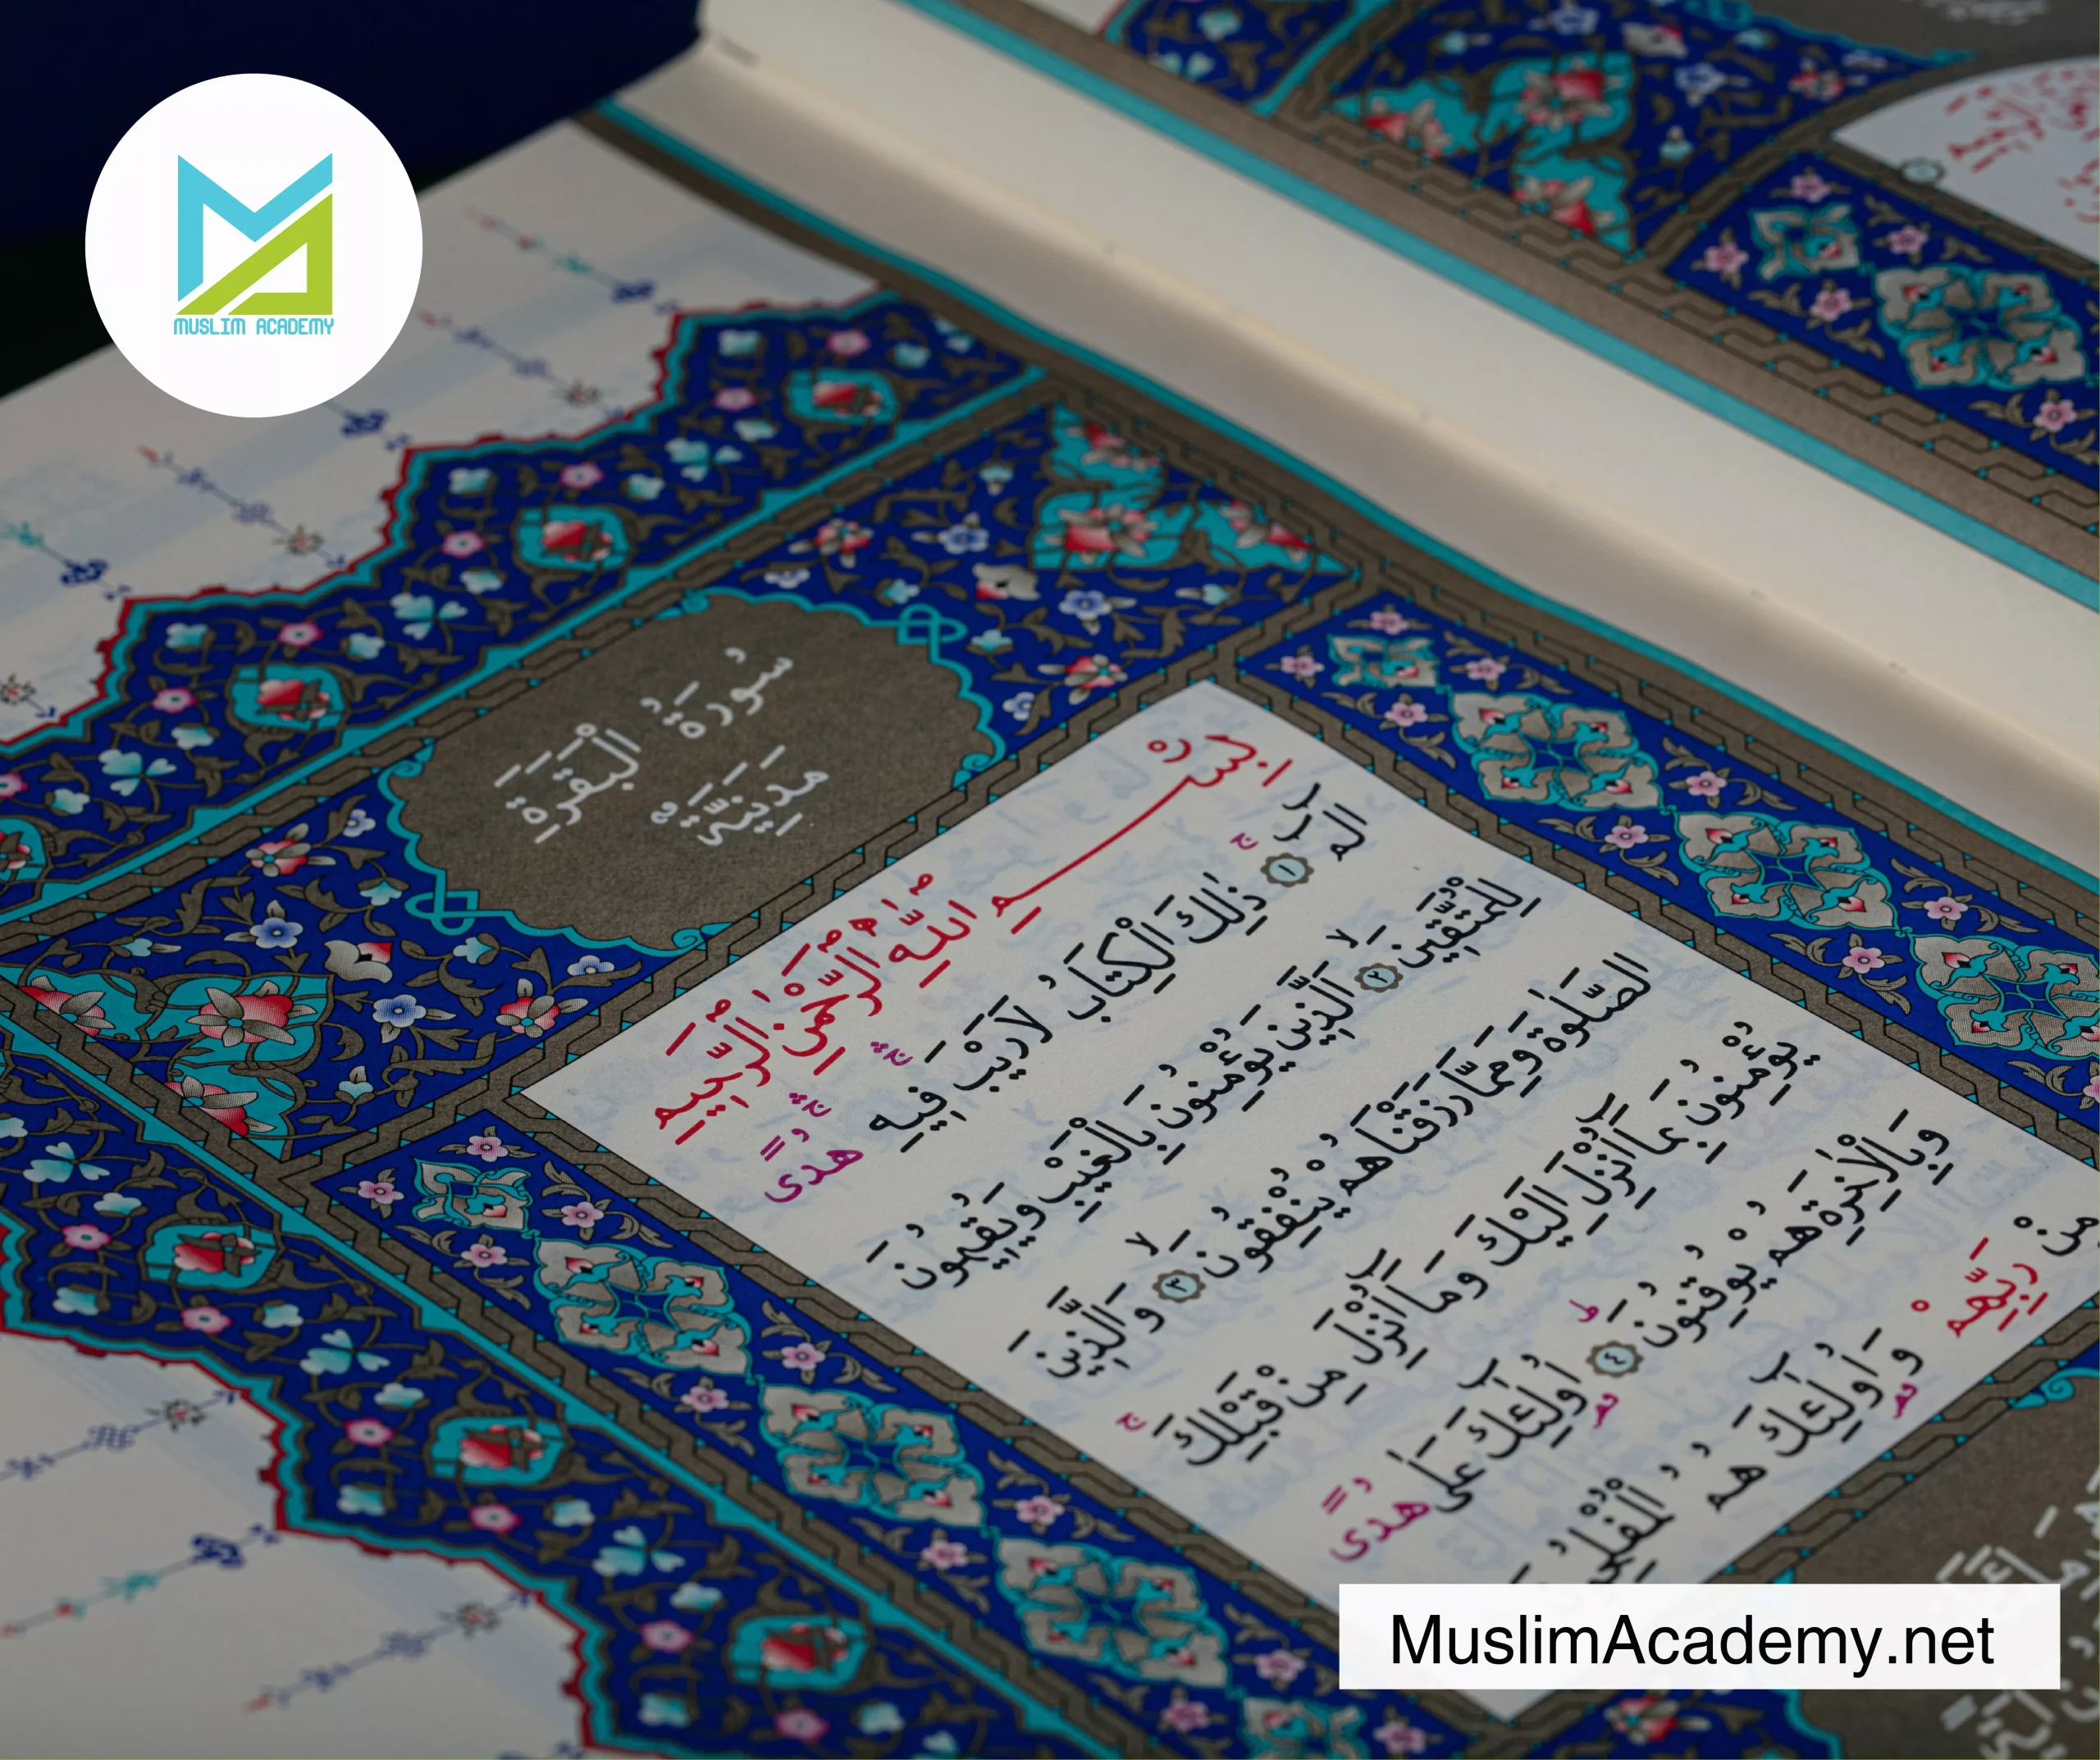 MUSLIM ACADEMY
سُورَةُ الْبَقَرَةِ
مَدَنِيَّةٌ
بِسْمِ اللّٰهِ الرَّحْمٰنِ الرَّحِيمِ
الٓمٓ ۚ ﴿١﴾ ذٰلِكَ الْكِتَابُ لَا رَيْبَ ۛ فِيهِ ۛ هُدًى
لِلْمُتَّقِينَ ۙ ﴿٢﴾ اَلَّذِينَ يُؤْمِنُونَ بِالْغَيْبِ وَيُقِيمُونَ
الصَّلٰوةَ وَمِمَّا رَزَقْنَاهُمْ يُنْفِقُونَ ۙ ﴿٣﴾ وَالَّذِينَ
يُؤْمِنُونَ بِمَٓا اُنْزِلَ اِلَيْكَ وَمَٓا اُنْزِلَ مِنْ قَبْلِكَ ۚ
وَبِالْاٰخِرَةِ هُمْ يُوقِنُونَ ۜ ﴿٤﴾ اُولٰٓئِكَ عَلٰى هُدًى
مِنْ رَبِّهِمْ وَاُولٰٓئِكَ هُمُ
MuslimAcademy.net